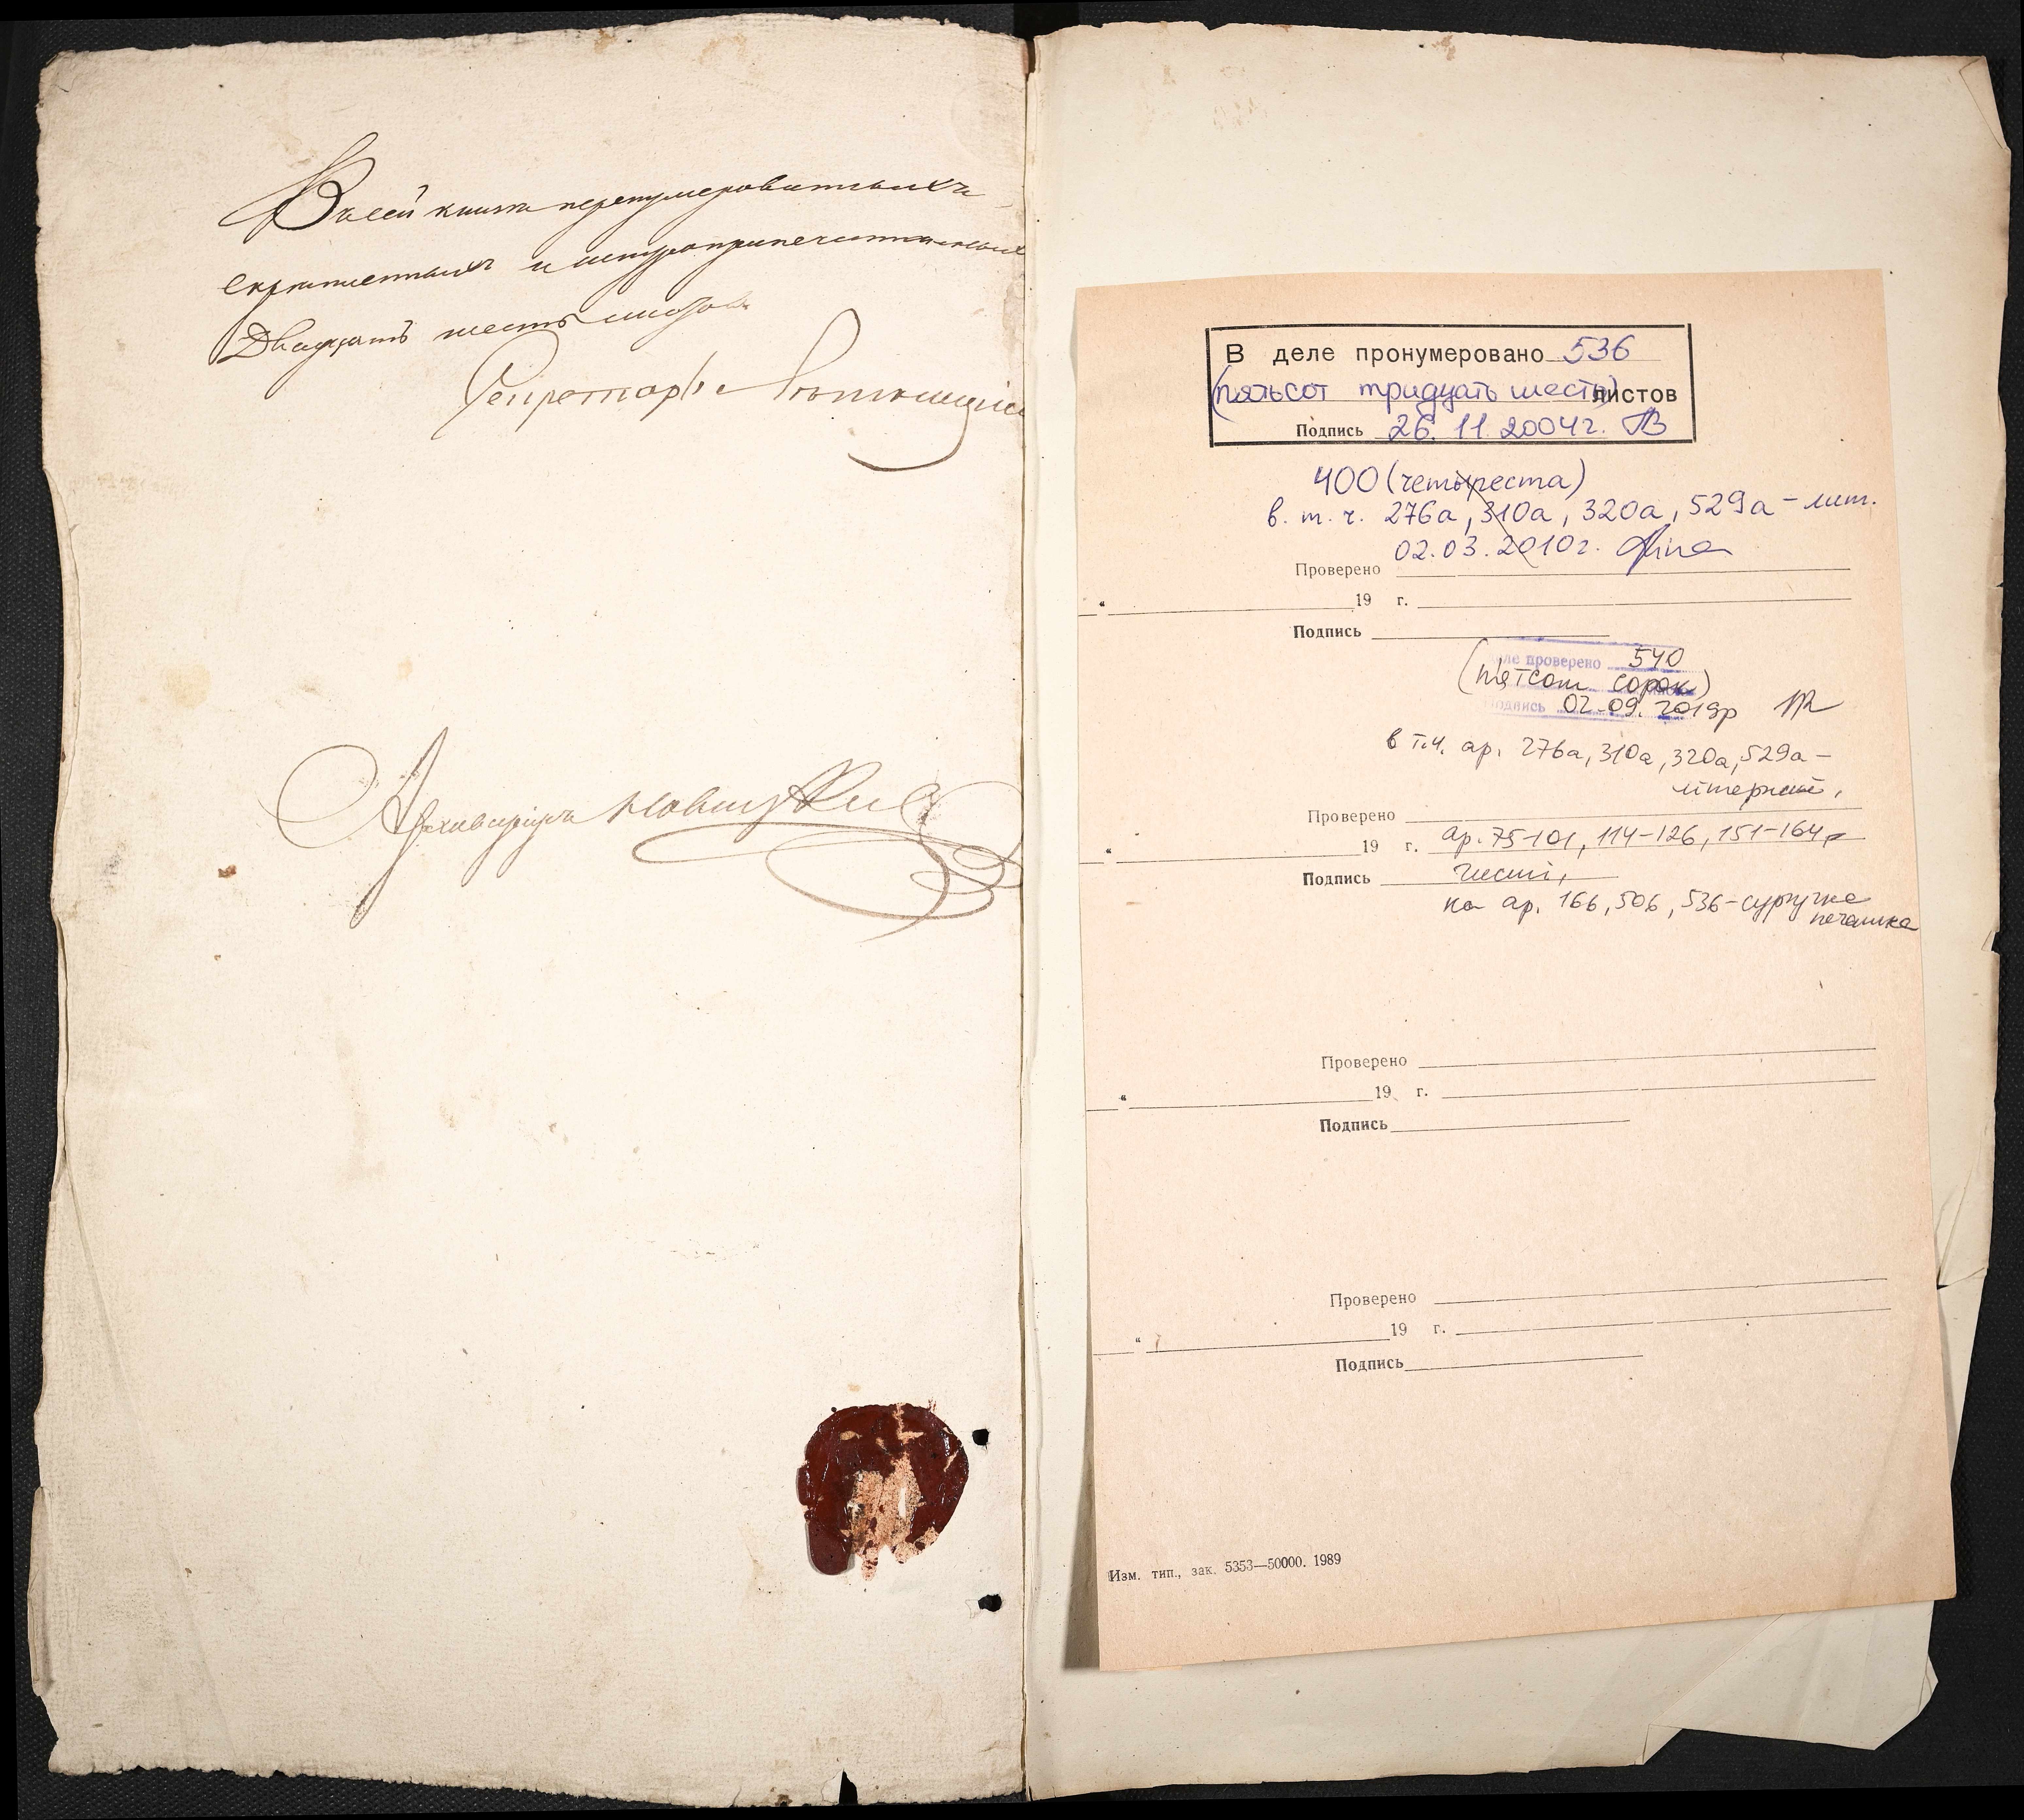 В сей книги перенумерованныхъ
скрепленныхъ и шнуроприпечатанныхъ
Двадцать шесть листовъ
Секретарь
Архивариусъ
В деле пронумеровано 536
(пятьсот тридцать шесть) листов
Подпись 26.11.2004г.
400 (четыреста)
в. т. ч. 276а, 310а, 320а, 529а - лит.
02.03.2010г.
Проверено
" 19 г.
Подпись
ле проверено 540
(п'ятсот сорок)
Подпись 02.09.2019р
в т.ч. ар. 276а, 310а, 320а, 529а -
літерні,
Проверено
" 19 г. ар. 75-101, 114-126, 151-164,
Подпись чисті,
на ар. 166, 506, 536 - сургучна
печатка
Проверено
" 19 г.
Подпись
Проверено
" 19 г.
Подпись
Изм. тип., зак. 5353—50000. 1989